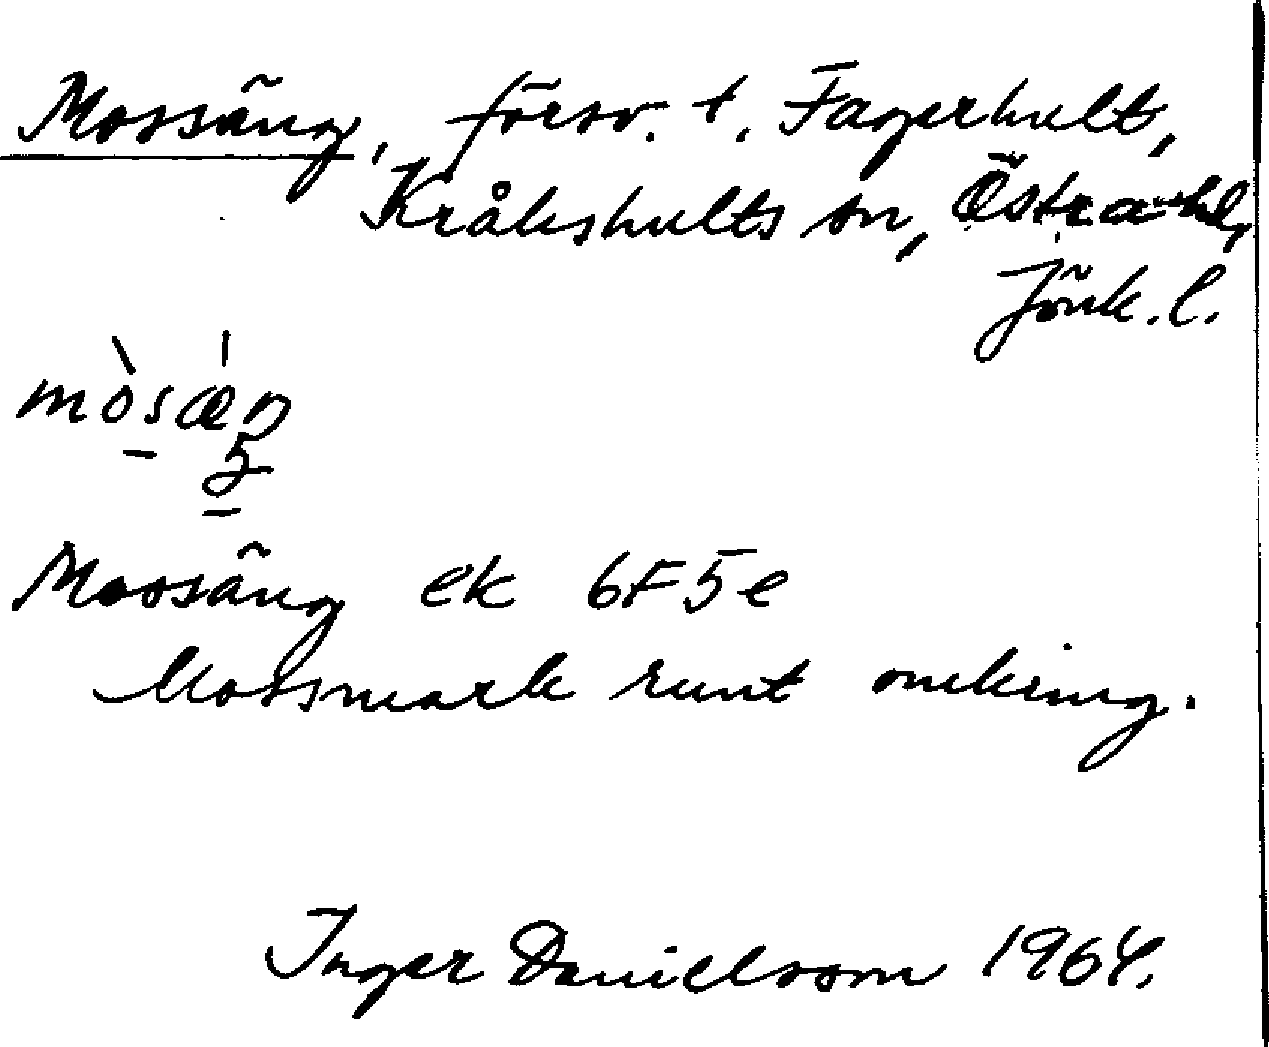 Mossäng, försv. t. Fagerhult,
Kråkshults sn, Östra hd,
Jönk. l.
mòsæŋ
Mossäng ek 6F5e
Mossmark runt omkring.
Inger Danielsson 1964.